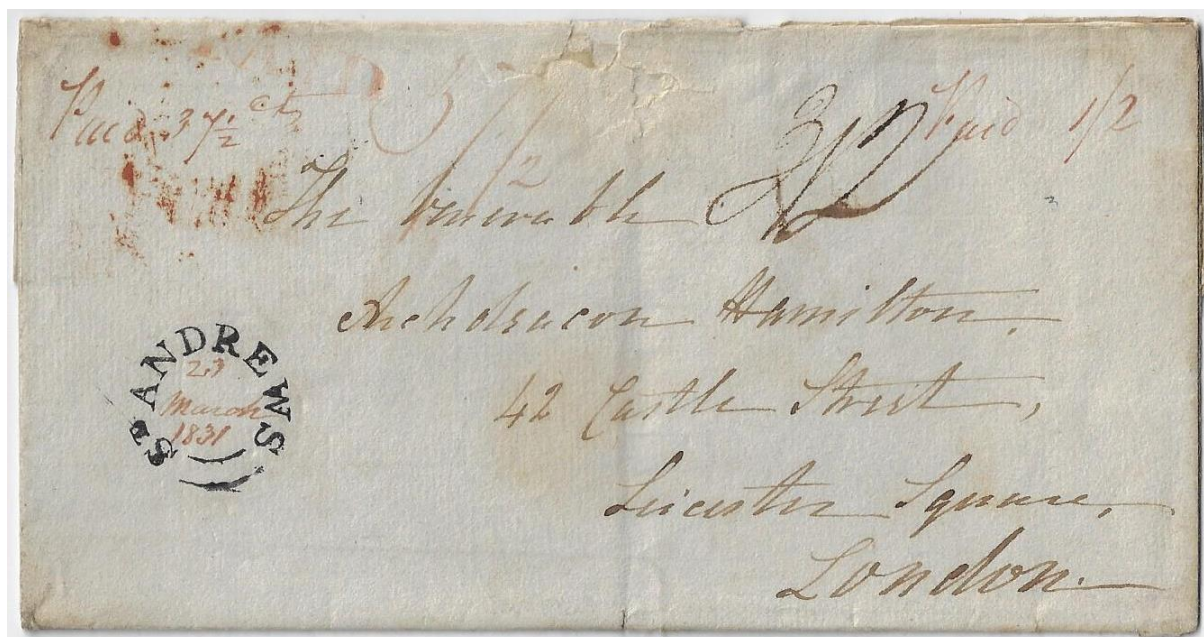 Paid 37½ cts
3/2
Paid 1/2
1/2
The Venerable
Archdeacon Hamilton,
42 Castle Street,
Leicester Square,
London.
ST ANDREWS
23
March
1831